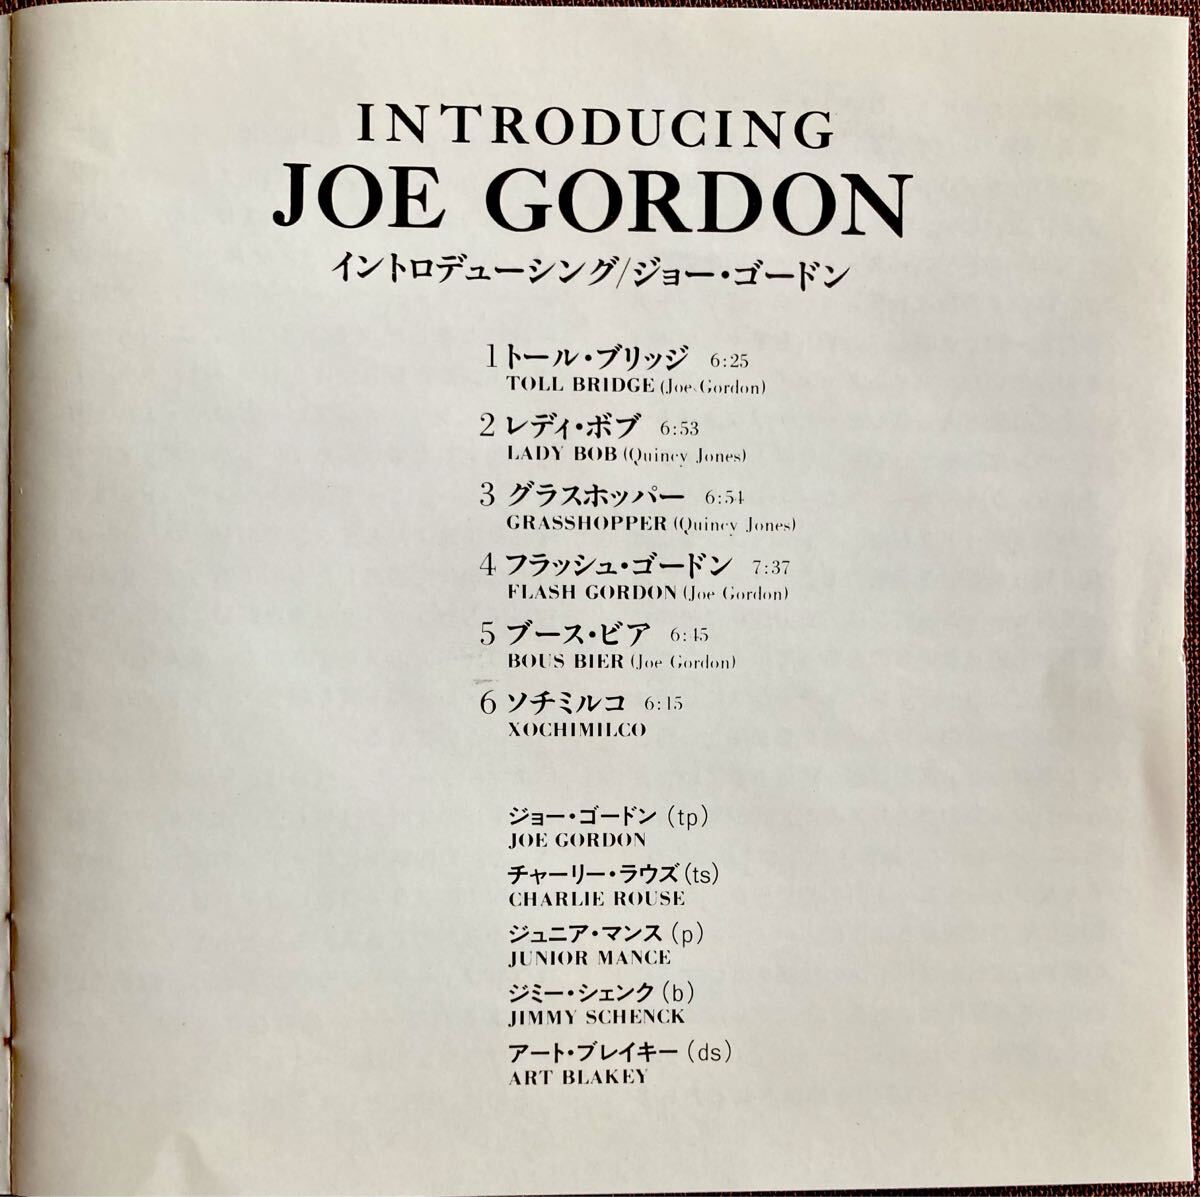 INTRODUCING
JOE GORDON
イントロデューシング/ジョー・ゴードン
1 トール・ブリッジ 6:25
TOLL BRIDGE (Joe Gordon)
2 レディ・ボブ 6:53
LADY BOB (Quincy Jones)
3 グラスホッパー 6:54
GRASSHOPPER (Quincy Jones)
4 フラッシュ・ゴードン 7:37
FLASH GORDON (Joe Gordon)
5 ブース・ビア 6:45
BOUS BIER (Joe Gordon)
6 ソチミルコ 6:15
XOCHIMILCO
ジョー・ゴードン (tp)
JOE GORDON
チャーリー・ラウズ (ts)
CHARLIE ROUSE
ジュニア・マンス (p)
JUNIOR MANCE
ジミー・シェンク (b)
JIMMY SCHENCK
アート・ブレイキー (ds)
ART BLAKEY